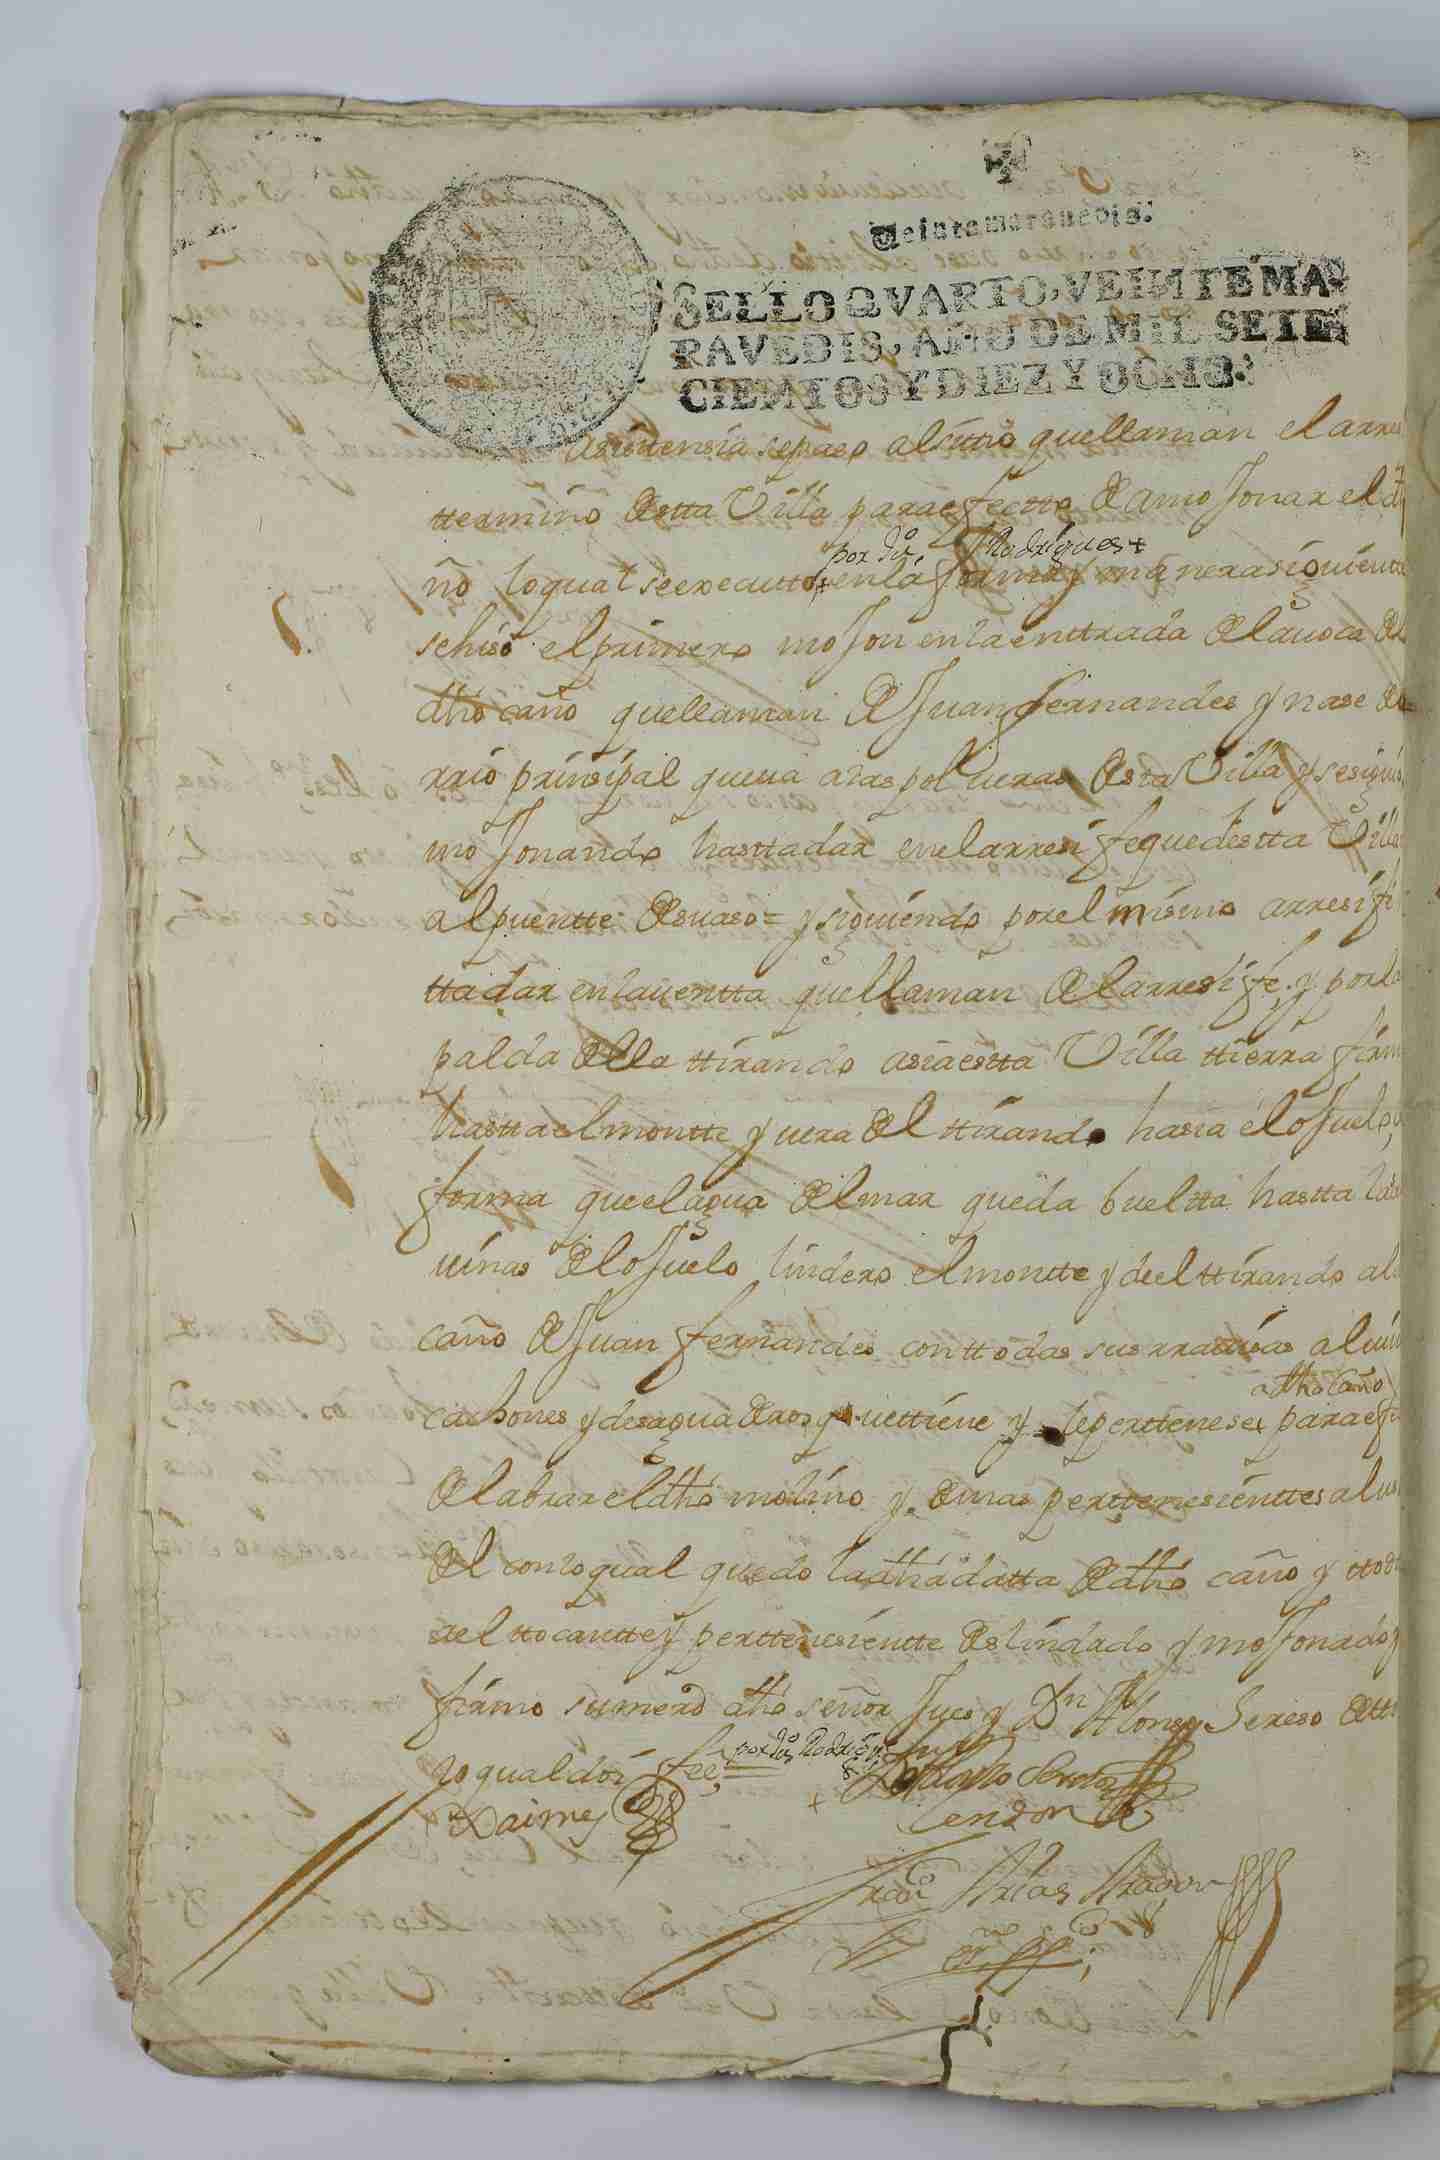 Veinte maravedis.
SELLO QVARTO, VEINTE MA-
RAVEDIS, AÑO DE MIL SETE-
CIENTOS Y DIEZ Y OCHO.
asistensia se paso al sittio que llaman el arre
ttermino destta Villa para efectto de amoJonar el
por Ju.o Rodrigues +
ño lo qual se executto + en la forma y manera siguiente
se hiso el primero moJon en la enttrada de la uoca de
dho caño que llaman de Juan fernandes y nase de
rrio prinsipal que ua a las polueras de sta Villa y se siguio
moJonando hastta dar en el arresife que de estta Villa
al puentte de suaso = y siguiendo por el mismo arresif
tta dar en la uentta que llaman del arresife y por la
palda de lla ttirando asia estta Villa tierra firm
hastta el montte y uera del ttirando hasia el oJuelo
forma que el agua del mar queda buelta hastta las
uinas del oJuelo lindero el montte y de el ttirando al
caño de Juan fernandes con ttodas sus
a dho caño
cachones y desaguaderos que ttiene y le perttenese + para ef
de labrar el dho molino y demas perttenesienttes al us
del con lo qual quedo la dha datta de dho caño y ttodo
ael ttocantte y perttenesientte deslindado y moJonado y
firmo su merd dho señor Jues y Dn Alonso Sereso de tt
lo qual doi fee = por Ju.o Rodrigu
Xaimes
Rendon
Franco Arias